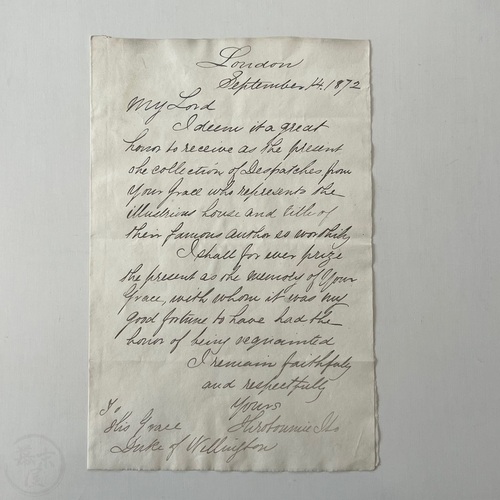 London
September 14. 1872
My Lord
I deem it a great
honor to receive as the present
the collection of Despatches from
Your Grace who represents the
illustrious house and title of
their famous author so worthily
I shall for ever prize
the present as the memory of Your
Grace, with whom it was my
good fortune to have had the
honor of being acquainted
I remain faithfully
and respectfully
Yours
Hiroboumie Ito
To
His Grace
Duke of Wellington